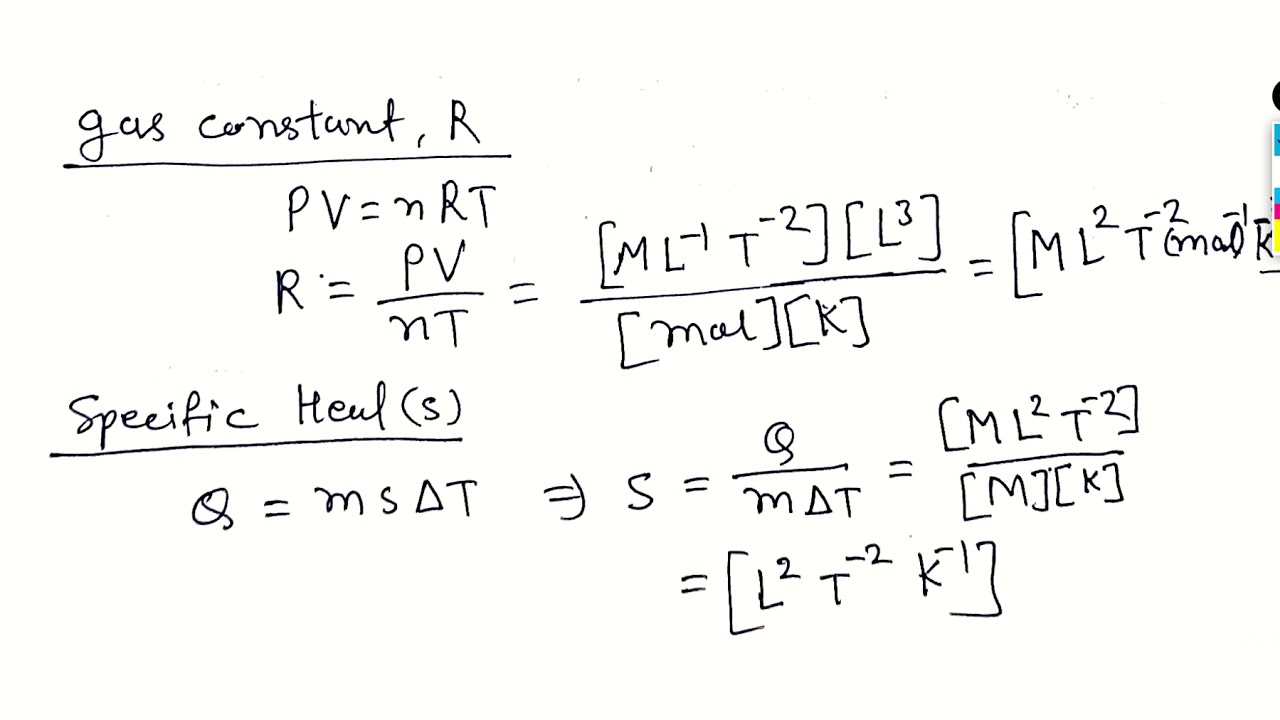 gas constant, R
PV = nRT
R = PV/nT = [ML⁻¹ T⁻²][L³]/[mol][K] = [M L² T⁻² (mol)⁻¹ K
Specific Heat (s)
Q = m s ΔT ⇒ S = Q/m ΔT = [M L² T⁻²]/[M][K]
= [L² T⁻² K⁻¹]